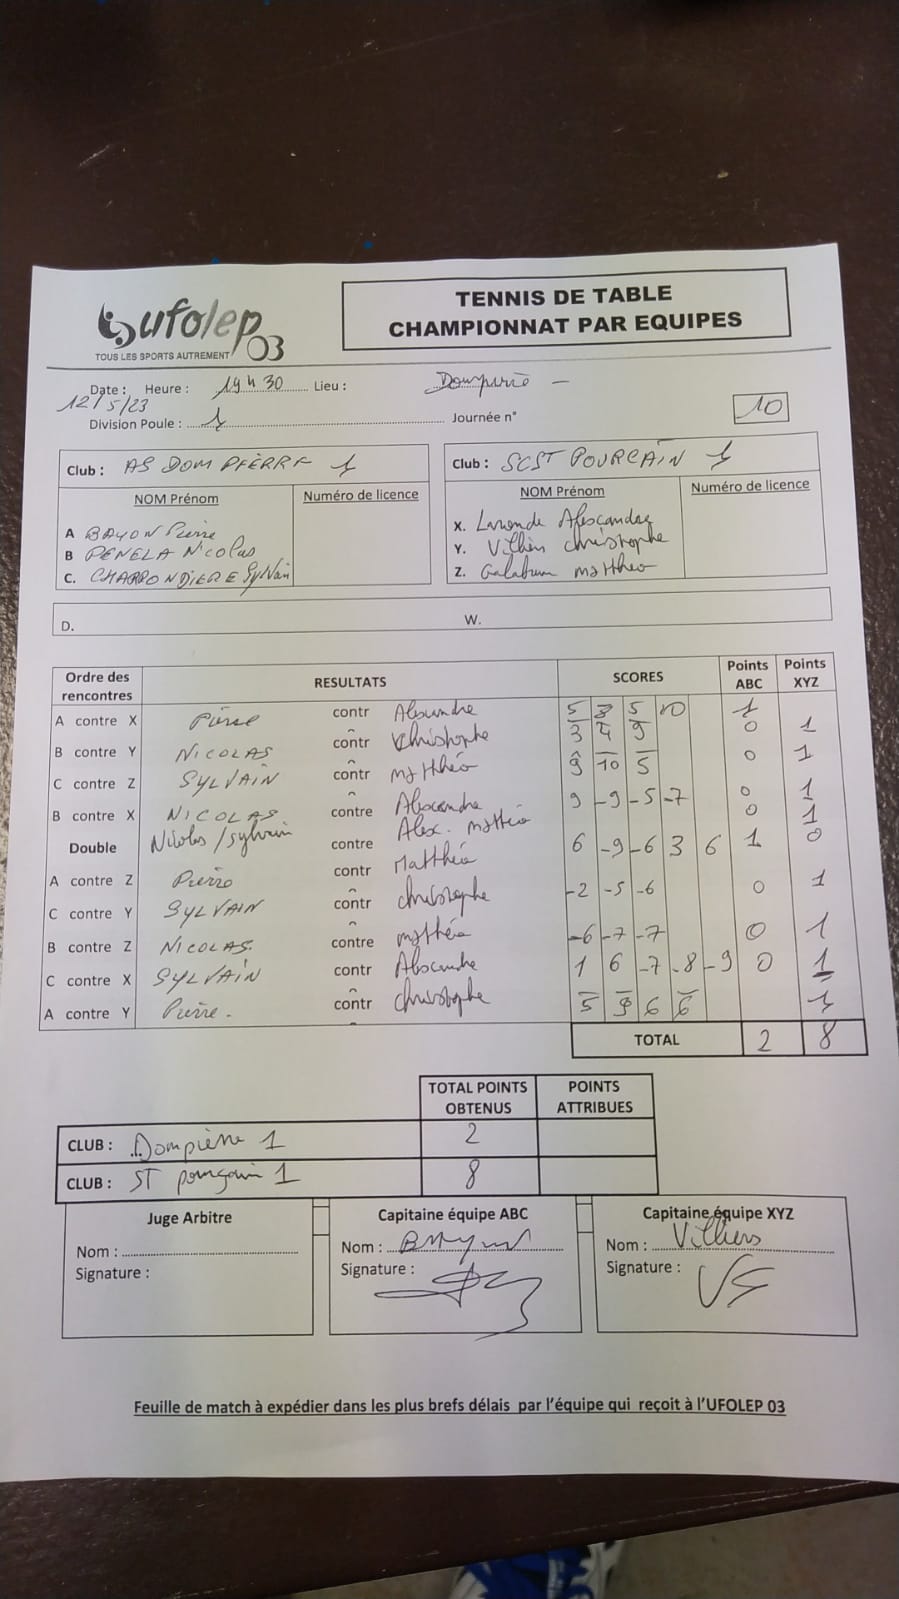 ufolep 03
TOUS LES SPORTS AUTREMENT
TENNIS DE TABLE
CHAMPIONNAT PAR EQUIPES
Date : Heure : 19 H 30 Lieu :
12/5/23
Division Poule : 1 Journée n° 10
Club : AS DOMPIERRE 1
Club : SCST POURCAIN 1
NOM Prénom Numéro de licence
NOM Prénom Numéro de licence
A BAYON Pierre
B PENELA Nicolas
C. CHARRONDIERE Sylvain
X. Alexandre
Y. christophe
Z. mattheo
D. W.
Ordre des rencontres RESULTATS SCORES Points ABC Points XYZ
A contre X Pierre contr Alexandre 5 8 5 10 1
B contre Y NICOLAS contr christophe 3 4 9 0 1
C contre Z SYLVAIN contr mattheo 9 10 5 0 1
B contre X NICOLAS contre Alexandre 9 -9 -5 -7 0 1
Double Nicolas/sylvain contre Alex. mattéo 0 1
A contre Z Pierre contr Matthéo 6 -9 -6 3 6 1 0
C contre Y SYLVAIN contr christophe -2 -5 -6 0 1
B contre Z NICOLAS. contre mathéo -6 -7 -7 0 1
C contre X SYLVAIN contr Alexandre 1 6 -7 -8 -9 0 1
A contre Y Pierre. contr christophe 5 9 6 6 1
TOTAL 2 8
TOTAL POINTS OBTENUS POINTS ATTRIBUES
CLUB : Dompierre 1 2
CLUB : ST pourçain 1 8
Juge Arbitre
Nom :
Signature :
Capitaine équipe ABC
Nom :
Signature :
Capitaine équipe XYZ
Nom : Villiers
Signature :
Feuille de match à expédier dans les plus brefs délais par l'équipe qui reçoit à l'UFOLEP 03